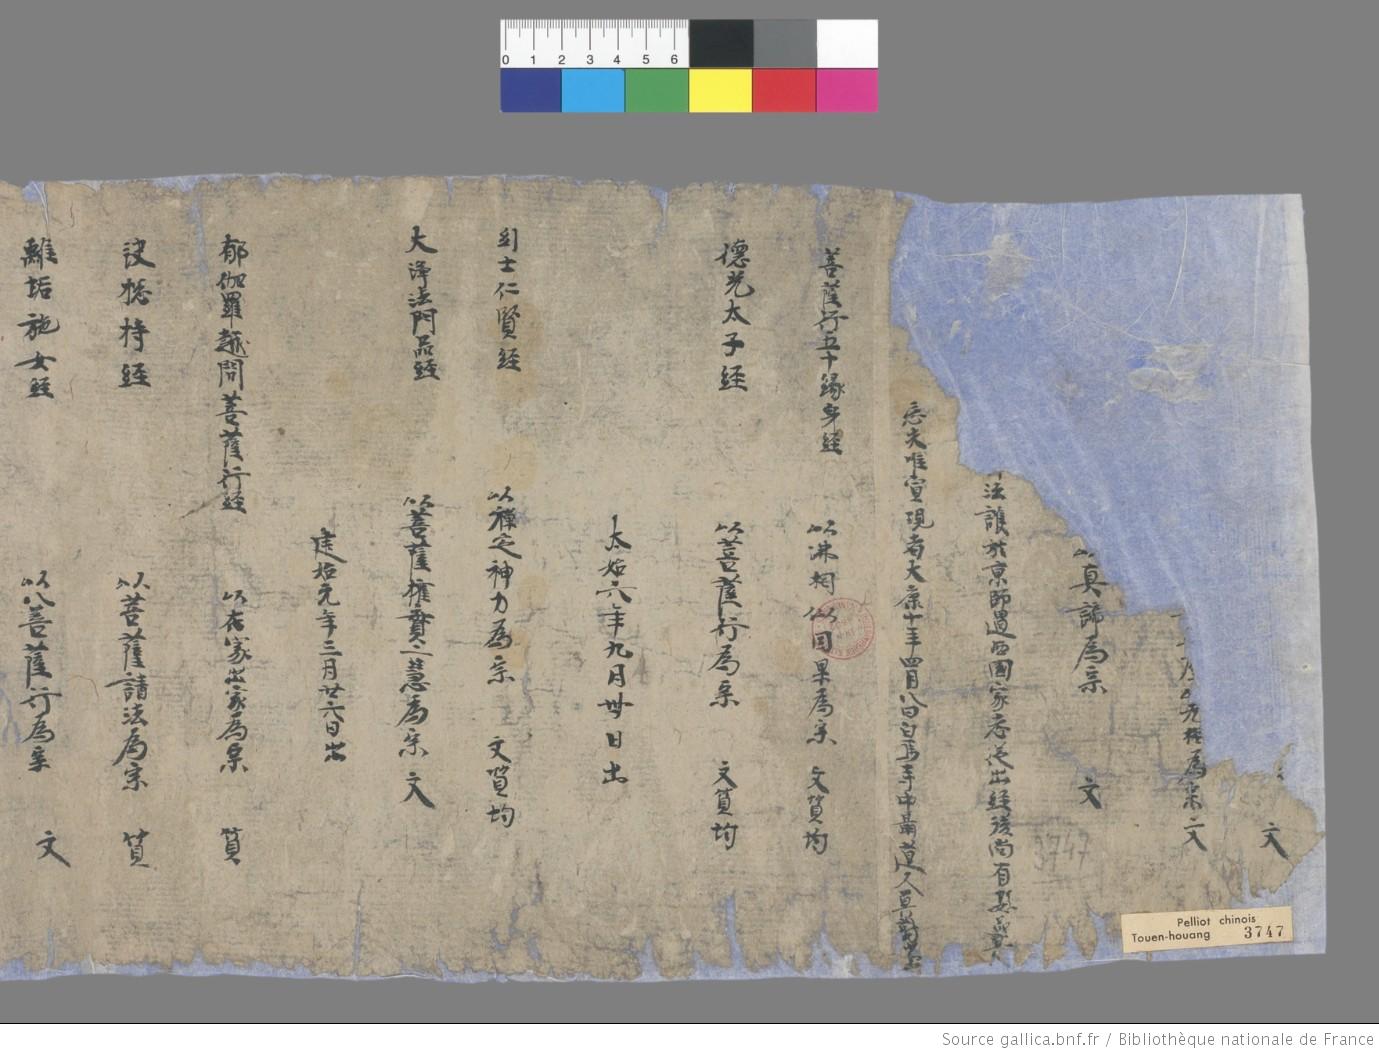 文
為宗 文
真諦為宗 文
法護於京師遇西國家 出經後尚有
唯宣現者大康十年四月八日白馬寺中 道人
菩薩行五十緣身經 以佛相似因果為宗 文質均
德光太子經 以菩薩行為宗 文質均
太始六年九月卅日出
刹士仁賢經 以禪定神力為宗 文質均
大淨法門品經 以菩薩權實二慧為宗 文
建始元年三月廿六日出
郁伽羅越問菩薩行經 以在家出家為宗 質
決揔持經 以菩薩請法為宗 質
離垢施女經 以八菩薩行為宗 文
0 1 2 3 4 5 6
3747
Pelliot chinois
Touen-houang 3747
Source gallica.bnf.fr / Bibliothèque nationale de France